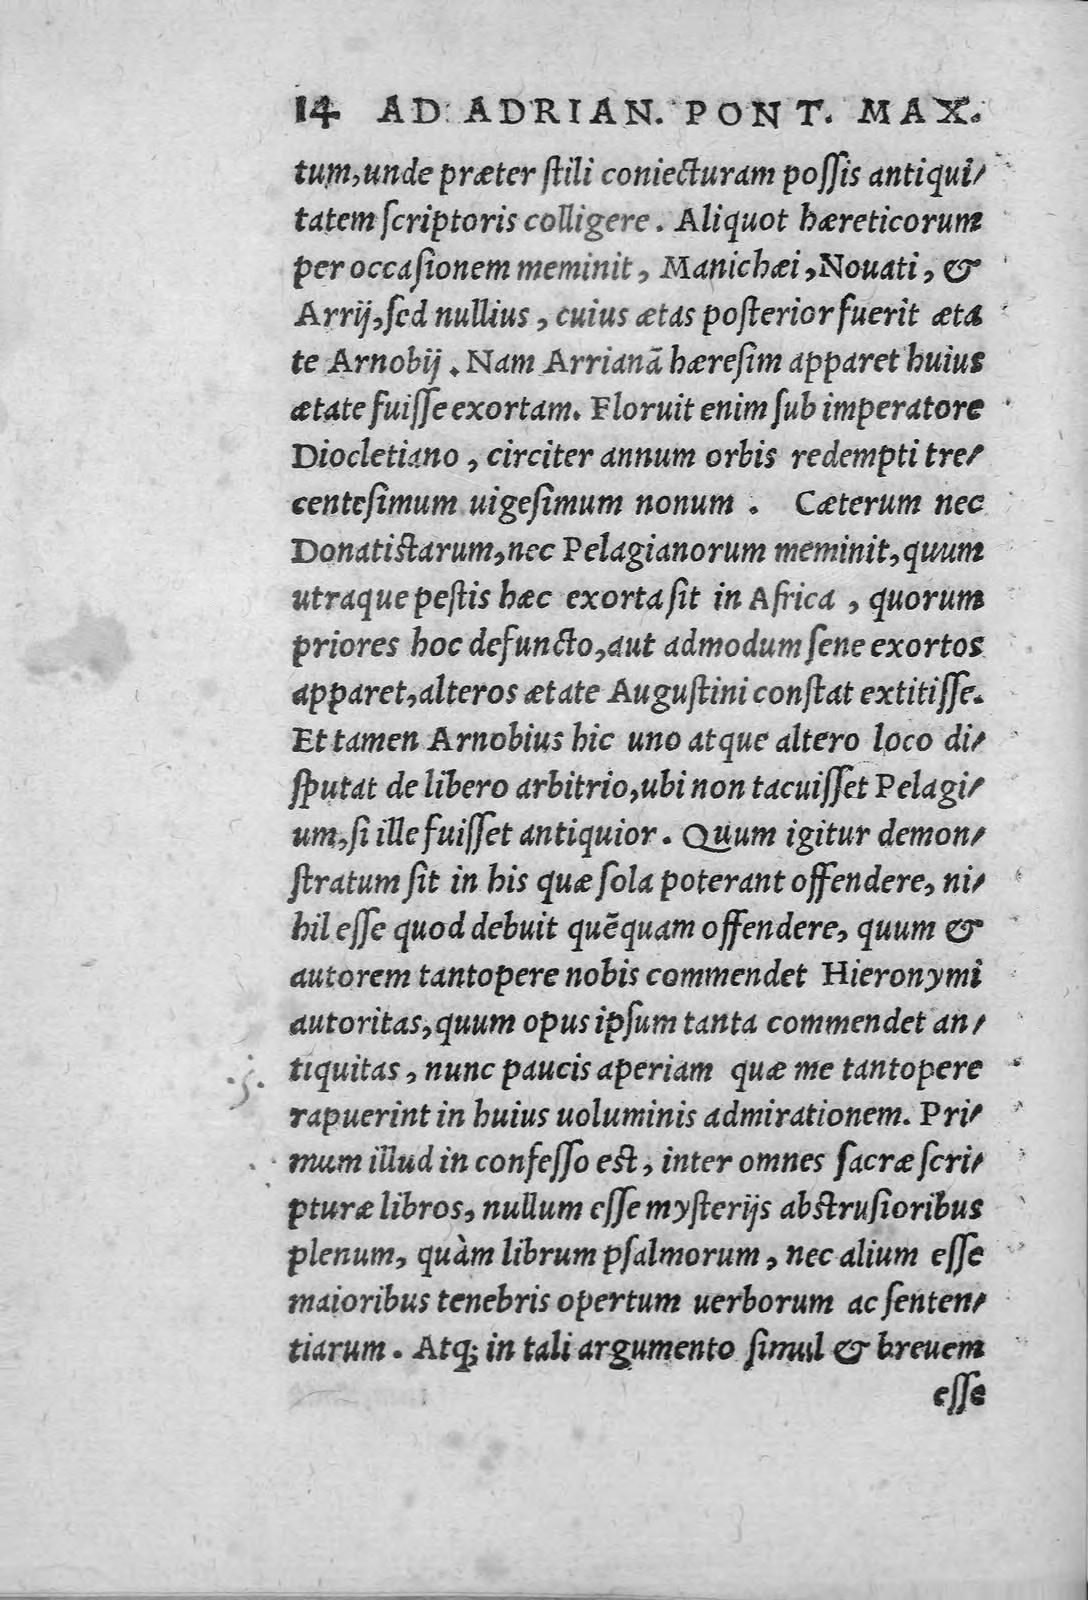 14 AD ADRIAN. PONT. MAX.
tum, unde præter ſtili coniecturam poſſis antiqui⸗
tatem ſcriptoris colligere. Aliquot hæreticorum
per occaſionem meminit, Manichæi, Nouati, &
Arrij, ſed nullius, cuius ætas poſterior fuerit æta
te Arnobij. Nam Arrianā hæreſim apparet huius
ætate fuiſſe exortam. Floruit enim ſub imperatore
Diocletiano, circiter annum orbis redempti tre⸗
centeſimum uigeſimum nonum. Cæterum nec
Donatistarum, nec Pelagianorum meminit, quum
utraque peſtis hæc exorta ſit in Africa, quorum
priores hoc defuncto, aut admodum ſene exortos
apparet, alteros ætate Auguſtini conſtat extitiſſe.
Et tamen Arnobius hic uno atque altero loco di⸗
ſputat de libero arbitrio, ubi non tacuiſſet Pelagi⸗
um, ſi ille fuiſſet antiquior. Quum igitur demon⸗
ſtratum ſit in his quæ ſola poterant offendere, ni⸗
hil eſſe quod debuit quēquam offendere, quum &
autorem tantopere nobis commendet Hieronymi
autoritas, quum opus ipſum tanta commendet an⸗
tiquitas, nunc paucis aperiam quæ me tantopere
rapuerint in huius uoluminis admirationem. Pri⸗
mum illud in confeſſo est, inter omnes ſacræ ſcri⸗
pturæ libros, nullum eſſe myſterijs abstruſioribus
plenum, quàm librum pſalmorum, nec alium eſſe
maioribus tenebris opertum uerborum ac ſenten⸗
tiarum. Atq; in tali argumento ſimul & breuem
eſſe